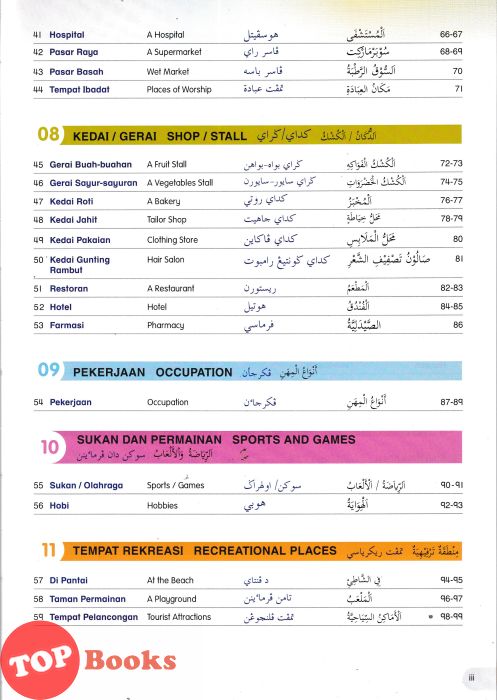 41 Hospital A Hospital هوسڤيتل اَلْمُسْتَشْفَى 66-67
42 Pasar Raya A Supermarket ڤاسر راي سُوْبَرْمَارْكِت 68-69
43 Pasar Basah Wet Market ڤاسر باسه اَلسُّوْقُ الرَّطْبَةُ 70
44 Tempat Ibadat Places of Worship تمڤت عبادة مَكَانُ العِبَادَةِ 71
08 KEDAI / GERAI SHOP / STALL كداي/ݢراي الدُّكَّانُ / الْكُشْكُ
45 Gerai Buah-buahan A Fruit Stall ݢراي بواه-بواهن الْكُشْكُ الْفَوَاكِهِ 72-73
46 Gerai Sayur-sayuran A Vegetables Stall ݢراي سايور-سايورن الْكُشْكُ الْخُضْرَوَاتِ 74-75
47 Kedai Roti A Bakery كداي روتي اَلْمَخْبَزُ 76-77
48 Kedai Jahit Tailor Shop كداي جاهيت مَحَلُّ خِيَاطَةٍ 78-79
49 Kedai Pakaian Clothing Store كداي ڤاكاين مَحَلُّ الْمَلَابِسِ 80
50 Kedai Gunting Rambut Hair Salon كداي ݢونتيڠ رامبوت صَالُوْنُ تَصْفِيْفِ الشَّعْرِ 81
51 Restoran A Restaurant ريستورن اَلْمَطْعَمُ 82-83
52 Hotel Hotel هوتيل اَلْفُنْدُقُ 84-85
53 Farmasi Pharmacy فرماسي الصَّيْدَلِيَّةُ 86
09 PEKERJAAN OCCUPATION ڤكرجاٴن أَنْوَاعُ الْمِهَنِ
54 Pekerjaan Occupation ڤكرجاٴن أَنْوَاعُ الْمِهَنِ 87-89
10 SUKAN DAN PERMAINAN SPORTS AND GAMES
سوكن دان ڤرماٴينن اَلرِّيَاضَةُ وَالْأَلْعَابُ
55 Sukan / Olahraga Sports / Games سوكن/ اولهراݢ اَلرِّيَاضَةُ / الْأَلْعَابُ 90-91
56 Hobi Hobbies هوبي اَلْهِوَايَةُ 92-93
11 TEMPAT REKREASI RECREATIONAL PLACES تمڤت ريكرياسي مِنْطَقَةٌ تَرْفِيْهِيَةٌ
57 Di Pantai At the Beach د ڤنتاي فِي الشَّاطِئِ 94-95
58 Taman Permainan A Playground تامن ڤرماٴينن اَلْمَلْعَبُ 96-97
59 Tempat Pelancongan Tourist Attractions تمڤت ڤلنچوڠن اَلْأَمَاكِنُ السِّيَاحِيَّةُ 98-99
TOP Books
iii